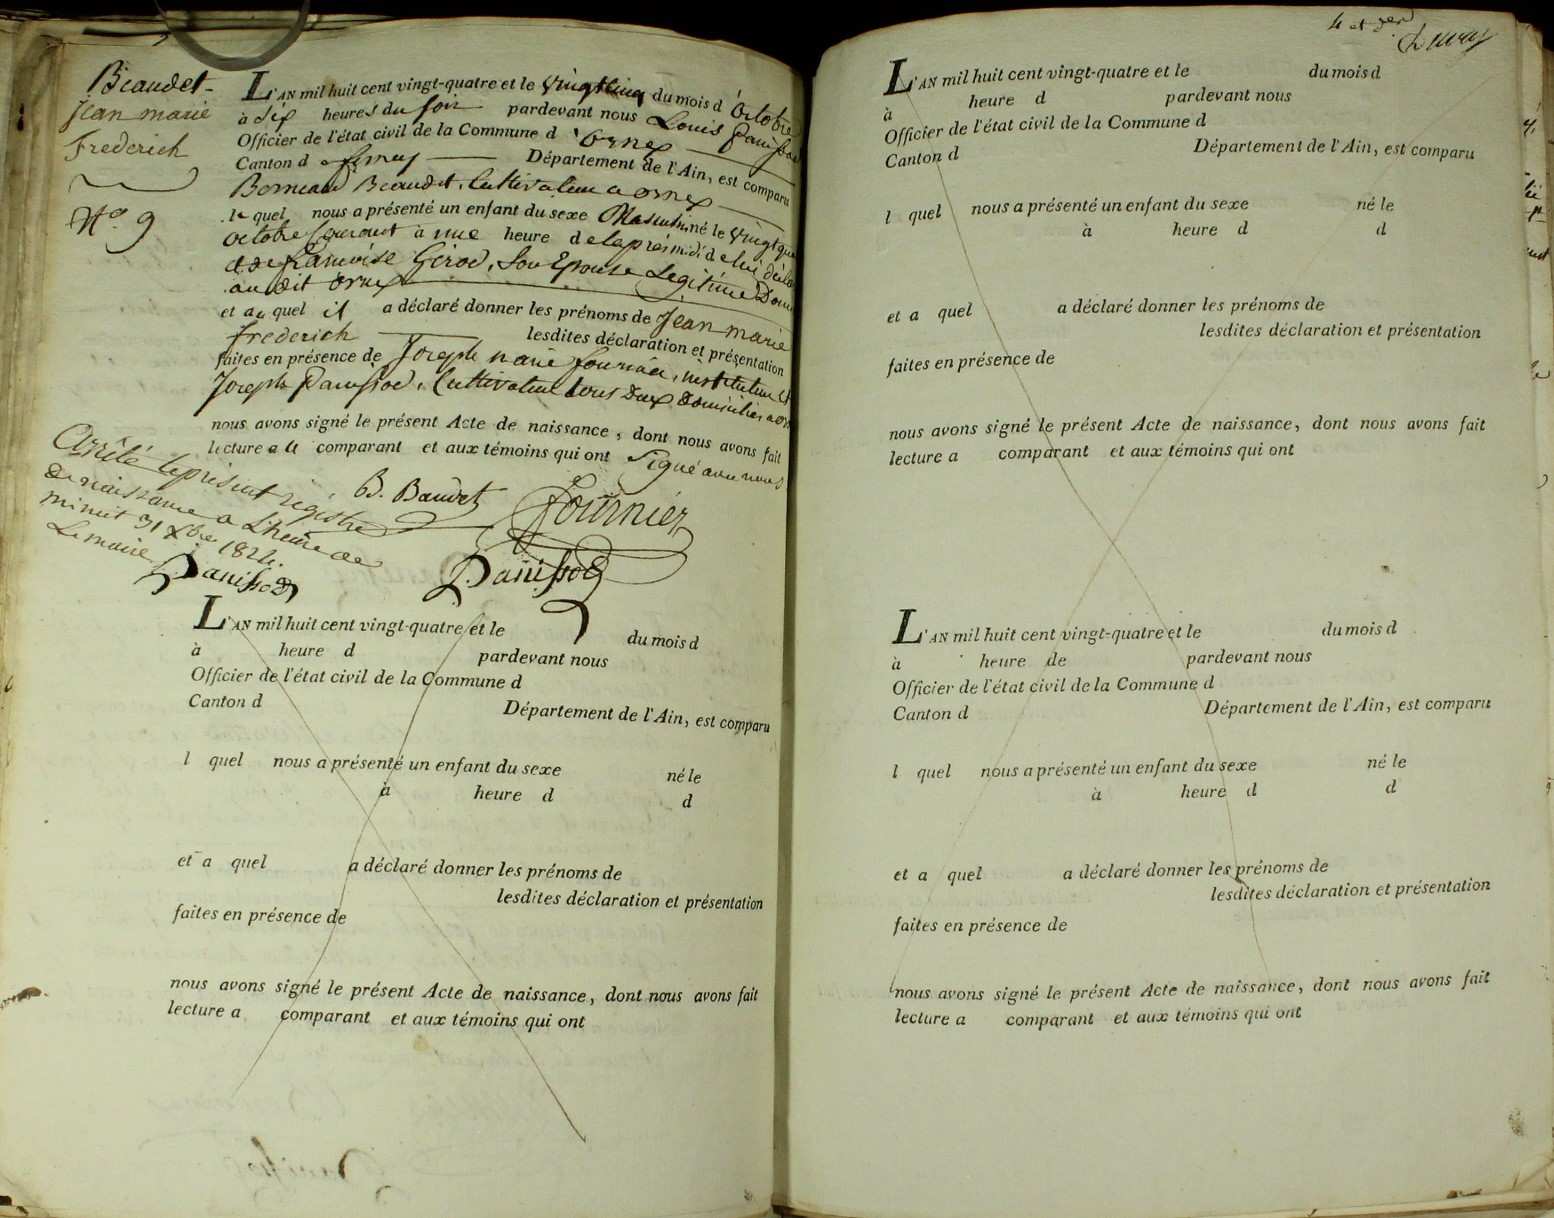 Beaudet
Jean marie
Frederich
N.º 9
L'AN mil huit cent vingt-quatre et le vingtcinq du mois d'Octobre
à six heures du soir pardevant nous Louis Panissod
Officier de l'état civil de la Commune d'ornex
Canton de ferney Département de l'Ain, est comparu
Bernard Beaudet, Cultivateur a ornex
le quel nous a présenté un enfant du sexe Masculin né le vingtqua
octobre Courant à une heure de laprès midi de lui décla
et de francoise Girod, Son Epouse Legitime Dom
au dit Ornex
et au quel il a déclaré donner les prénoms de Jean marie
frederich lesdites déclaration et présentation
faites en présence de Joseph marie fournier, instituteur et
Joseph Panissod, Cultivateur tous deux domiciliés a orn
nous avons signé le présent Acte de naissance, dont nous avons fait
lecture a le comparant et aux témoins qui ont Signé avec nous
B. Baudet
Fournier
Panissod
Arrêté le présent régistre
de naissance a L'heure de
minuit 31 Xbre 1824.
Le maire
Panissod
L'AN mil huit cent vingt-quatre et le du mois d
à heure d pardevant nous
Officier de l'état civil de la Commune d
Canton d Département de l'Ain, est comparu
l quel nous a présenté un enfant du sexe né le
à heure d d
et a quel a déclaré donner les prénoms de
lesdites déclaration et présentation
faites en présence de
nous avons signé le présent Acte de naissance, dont nous avons fait
lecture a comparant et aux témoins qui ont
4 et der
L'AN mil huit cent vingt-quatre et le du mois d
à heure d pardevant nous
Officier de l'état civil de la Commune d
Canton d Département de l'Ain, est comparu
l quel nous a présenté un enfant du sexe né le
à heure d d
et a quel a déclaré donner les prénoms de
lesdites déclaration et présentation
faites en présence de
nous avons signé le présent Acte de naissance, dont nous avons fait
lecture a comparant et aux témoins qui ont
L'AN mil huit cent vingt-quatre et le du mois d
à heure de pardevant nous
Officier de l'état civil de la Commune d
Canton d Département de l'Ain, est comparu
l quel nous a présenté un enfant du sexe né le
à heure d d
et a quel a déclaré donner les prénoms de
lesdites déclaration et présentation
faites en présence de
nous avons signé le présent Acte de naissance, dont nous avons fait
lecture a comparant et aux témoins qui ont